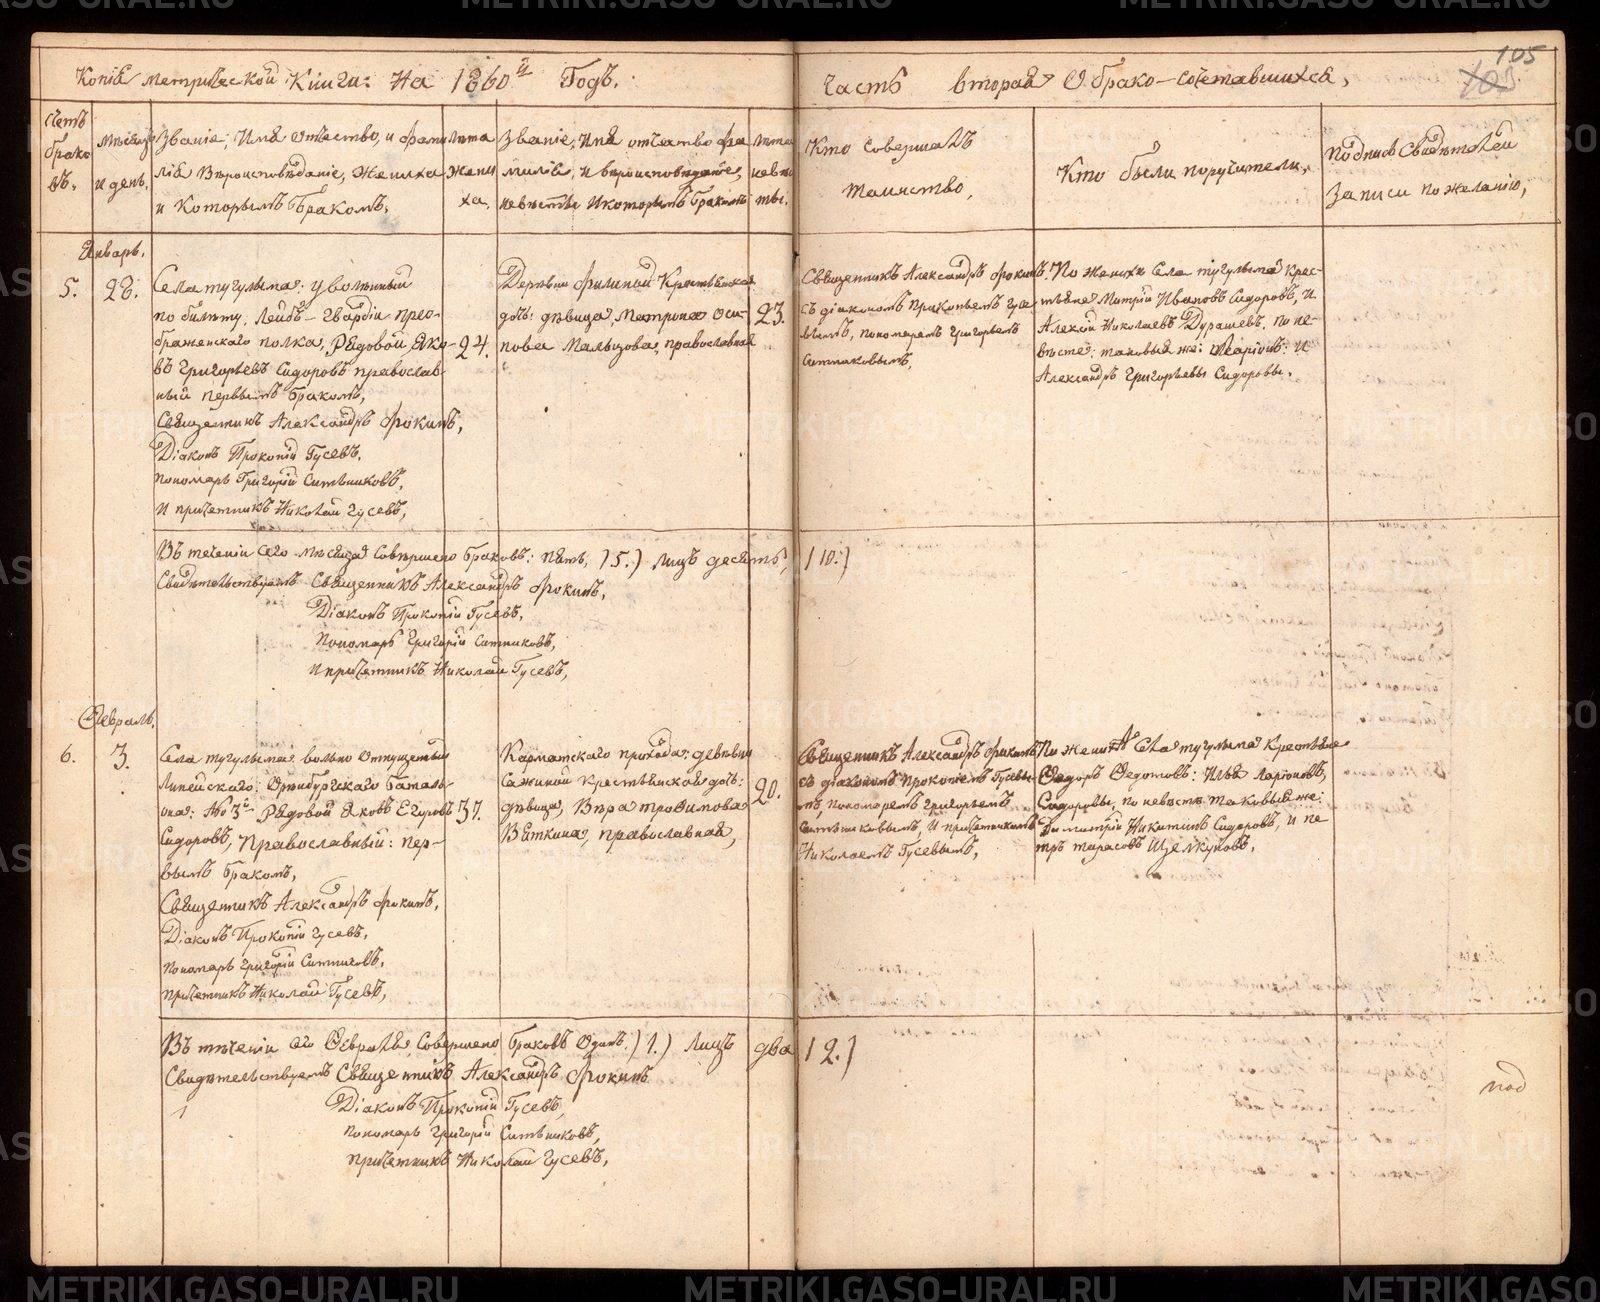 Копія метрической Книги: На 1860й Годъ.
Часть вторая О брако-сочетавшихся,
105
Счетъ браковъ.
Мѣсяцъ и день.
Званіе, Имя отчество, и фами
лія Вѣроисповѣданіе, Жениха
и Которымъ Бракомъ.
Лѣта
жени
ха.
Званіе, Имя отчество фа
милія, и вѣроисповѣданіе,
невѣсты и которымъ Бракомъ
лѣта
невѣс
ты.
Кто совершалъ
таинство,
Кто были поручители,
подпись Свидѣтелей
записи по желанію,
Январь.
5. 28.
Села тугулыма: уволенный
по билету, Лейбъ-Гвардіи прео-
браженскаго полка, Рядовой Яко-
въ Григорьевъ Сидоровъ православ-
ный первымъ бракомъ,
24.
Священникъ Александръ Фокинъ,
Діаконъ Прокопій Гусевъ,
пономарь Григорій Ситниковъ,
И причетникъ Николай Гусевъ,
Деревни Филиной Крестьянская
дочь: дѣвица, Матрона Оси-
пова Мальцова, православная
23.
Священникъ Александръ Фокинъ
съ діакономъ Прокопьемъ Гусе
вымъ, пономаремъ Григорьемъ
Ситниковымъ,
По женихѣ Села тугулыма Крес-
тьяне Митрій Ивановъ Сидоровъ, И
Алексѣй Николаевъ Дурашевъ. по не-
вѣстѣ: таковые же: Ларіонъ: и
Александръ Григорьевы Сидоровы.
Въ теченіи сего мѣсяца Совершено Браковъ: пять, (5.) лицъ десять, (10.)
Свидѣтельствуемъ Священникъ Александръ Фокинъ,
Діаконъ Прокопій Гусевъ,
пономарь Григорій Ситниковъ,
И причетникъ Николай Гусевъ,
Февраль.
6. 3.
Села тугулыма вольно отпущеный
Линейскаго: Оренбургскаго Баталь-
она: №3й Рядовой Яковъ Егоровъ
Сидоровъ, Православный: пер-
вымъ бракомъ,
37.
Священникъ Александръ Фокинъ,
Діаконъ Прокопій Гусевъ,
пономарь Григорій Ситниковъ,
причетникъ Николай Гусевъ,
Кармакскаго прихода: деревни
Сажиной Крестьянская дочь:
дѣвица, Вѣра трофимова
Вяткина, православная,
20.
Священникъ Александръ Фокинъ
съ діакономъ Прокопіемъ Гусевы
мъ, пономаремъ Григорьемъ
Ситниковымъ, И причетникомъ
Николаемъ Гусевымъ,
По женихѣ Села тугулыма Крестьяне
Ѳедоръ Ѳедотовъ: Илья Ларіоновъ,
Сидоровы, по невѣстѣ таковые же:
Димитрій Никитинъ Сидоровъ, и пе-
тръ тарасовъ Щелкуновъ,
Въ теченіи сего Февраля, Совершено Браковъ Одинъ: (1.) Лицъ два (2.)
Свидѣтельствуемъ Священникъ Александръ Фокинъ
Діаконъ Прокопій Гусевъ,
пономарь Григорій Ситниковъ,
причетникъ Николай Гусевъ,
под
METRIKI.GASO-URAL.RU